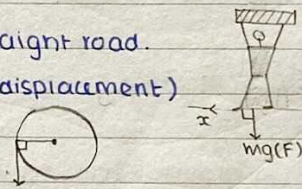 aight road.
displacement)
x
mg(F)